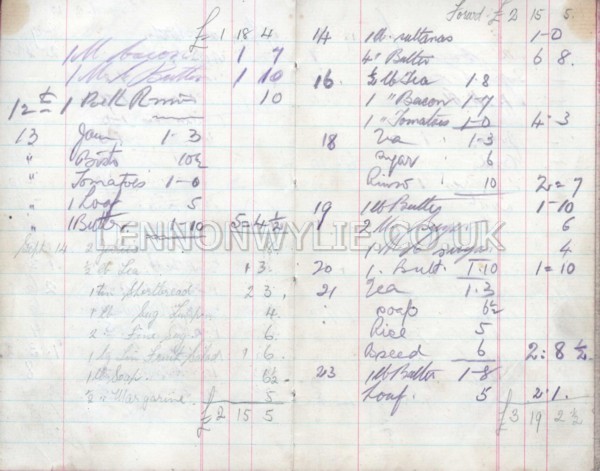 £ 1 18 4
1 lb bacon 1 7
1 lb Butter 1 10
12th 1 Pack R 10
13 Jam 1-3
" Bisto 10½
" Tomatoes 1-0
" 1 Loaf 5
" 1 Butter. 1-10 5=4½
Sept 14 2
½ lb Tea 1 3.
1 tin Shortbread 2 3.
1 lb Sug 4
2 " Fine Sug 6
1 Tin Fruit Salad 1 6.
1 lb Soap. 6½
½ " Margarine. 5
£ 2 15 5
Forward £ 2 15 5.
14 1 lb sultanas 1-0
4" Butter 6 8.
16 ½ lb Tea 1-8
1 " Bacon 1-7
1 " Tomatoes 1-0 4-3
18 Tea 1-3
sugar 6
Rinso 10 2=7
19 1 lb Butter 1-10
2 lb Sugar 6
1 4
20 1. Butt. 1-10 1=10
21 Tea 1-3
soap 6½
Rice 5
6 2:8½
23 1 lb Butter 1-8
Loaf. 5 2-1.
£3 19 2½
LENNONWYLIE.CO.UK